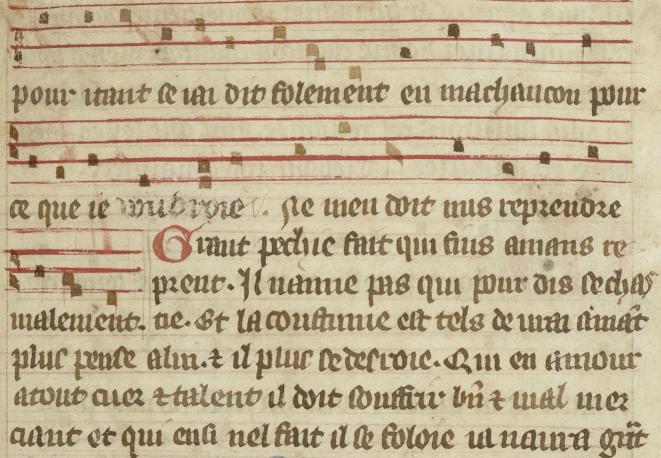 pour itant se iai dit folement en machancon pour
ce que ie voudroie. Ne men doit nus reprendre
Grant pechie fait qui fins amans re
prent. Il naime pas qui pour dis se chas
malement. tie. Et la coustume est tels de urai amāt
plus pense alui. ⁊ il plus se desroie. Qui en amour
atout cuer ⁊ talent il doit souffrir bn̄ ⁊ mal mer
ciant et qui ensi nel fait il se foloie ia naura grāt